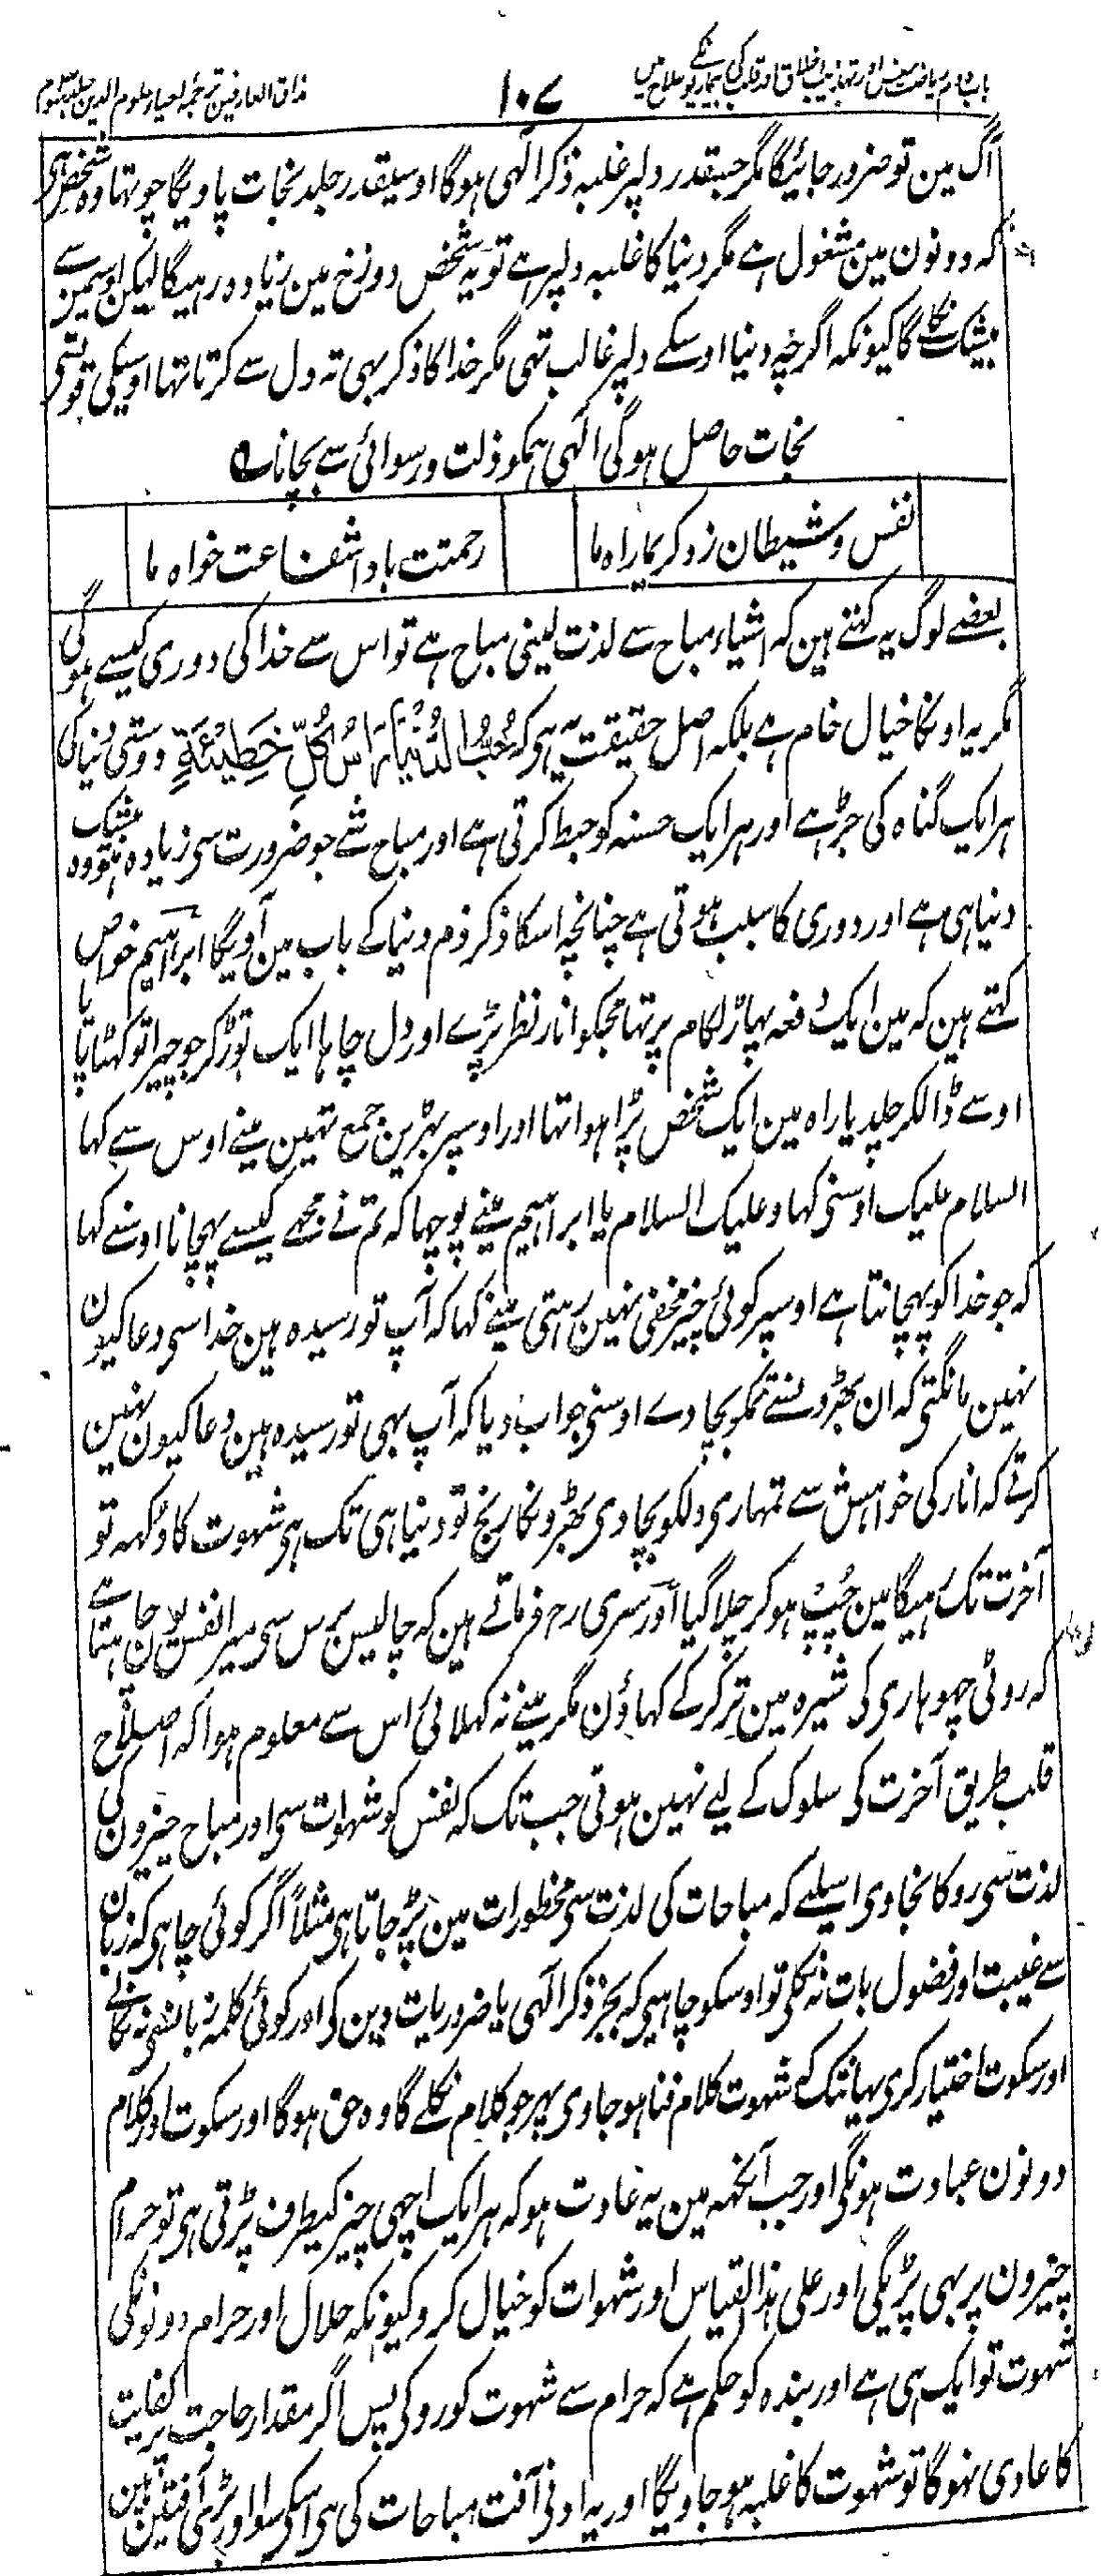 باب دوم ریاضت نفس اور تہذیب اخلاق اور قلب کی بیماریونکے علاج میں
۱۰۷
مذاق العارفین ترجمہ احیاء علوم الدین جلد سوم
آگ مین تو ضرور جائیگا مگر جسقدر دلپر غلبہ ذکر الٰہی ہوگا اوسیقدر جلد نجات پاویگا چوتہا وہ شخص ہی
کہ دونون مین مشغول ہے مگر دنیا کا غلبہ دلپر ہے تو یہ شخص دوزخ مین زیادہ رہیگا لیکن اوسمین سے
بیشک نکلے گا کیونکہ اگرچہ دنیا اوسکے دلپر غالب تہی مگر خدا کا ذکر بہی تہ دل سے کرتا تہا اوسیکی
نجات حاصل ہوگی الٰہی ہمکو ذلت ورسوائی سے بچانا
نفس وشیطان زد کریما راہ ما
رحمتت باد اشفاعت خواہ ما
بعضے لوگ یہ کہتے ہین کہ اشیاء مباح سے لذت لینی مباح ہے تو اس سے خدا کی دوری کیسے ہوگی
مگر یہ اونکا خیال خام ہے بلکہ اصل حقیقت یہ ہی کہ حُبُّ الدُّنْیَا رَاْسُ کُلِّ خَطِیْئَةٍ دوستی دنیا کی
ہر ایک گناہ کی جڑ ہے اور ہر ایک حسنہ کو حبط کرتی ہے اور مباح شے جو ضرورت سی زیادہ ہو تو وہ بیشک
دنیا ہی ہے اور دوری کا سبب ہوتی ہے چنانچہ اسکا ذکر ذم دنیا کے باب مین آویگا ابراہیم خواص
کہتے ہین کہ مین ایک دفعہ پہاڑ لکام پر تہا مجکو انار نظر پڑے اور دل چاہا ایک توڑ کر جو چیرا تو کہٹا پایا
اوسے ڈالکر چلدیا راہ مین ایک شخص پڑا ہوا تہا اور اوسپر بہڑین جمع تہین مینے اوس سے کہا
السلام علیک اوسنی کہا وعلیک السلام یا ابراہیم مینے پوچہا کہ تم نے مجہے کیسے پہچانا اوسنے کہا
کہ جو خدا کو پہچانتا ہے اوسپر کوئی چیز مخفی نہین رہتی مینے کہا کہ آپ تو رسیدہ ہین خدا سی دعا کیون
نہین مانگتی کہ ان بہڑونسے تمکو بچادے اوسنی جواب دیا کہ آپ بہی تو رسیدہ ہین دعا کیون نہین
کرتے کہ انار کی خواہش سے تمہاری دلکو بچادی بہڑونکا رنج تو دنیا ہی تک ہی شہوت کا دکہہ تو
آخرت تک رہیگا مین چُپ ہوکر چلا گیا اور سری رح فرماتے ہین کہ چالیس برس سی میرا نفس یون چاہتا ہے
کہ روٹی چہوہاری کی شیرہ مین تر کرکے کہاؤن مگر مینے نہ کہلائی اس سے معلوم ہوا کہ اصلاح
قلب طریق آخرت کی سلوک کے لیے نہین ہوتی جب تک کہ نفس کو شہوات سی اور مباح چیزون کی
لذت سی روکا نجاوی اسلیے کہ مباحات کی لذت سی محظورات مین پڑ جاتا ہی مثلاً اگر کوئی چاہی کہ زبان
سے غیبت اور فضول بات نہ نکلی تو اوسکو چاہیے کہ بجز ذکر الٰہی یا ضروریات دین کی اور کوئی کلمہ زبانسی نہ نکالے
اور سکوت اختیار کری یہانتک کہ شہوت کلام فنا ہوجاوی پہر جو کلام نکلے گا وہ حق ہوگا اور سکوت اور کلام
دونون عبادت ہونگی اور جب آنکہہ مین یہ عادت ہو کہ ہر ایک اچہی چیز کیطرف پڑتی ہی تو حرام
چیزون پر بہی پڑیگی اور علی ہذا القیاس اور شہوات کو خیال کرو کیونکہ حلال اور حرام دونونکی
شہوت تو ایک ہی ہے اور بندہ کو حکم ہے کہ حرام سے شہوت کو روکی پس اگر مقدار حاجت پر کفایت
کا عادی نہوگا تو شہوت کا غلبہ ہوجاویگا اور یہ ادنی آفت مباحات کی ہی اسکی سوا اور بڑی آفتین ہین